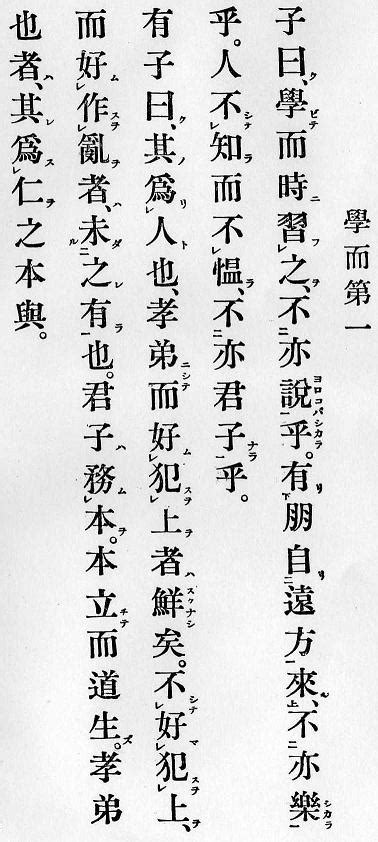 學而第一
子曰、學而時習之、不亦說乎。有朋自遠方來、不亦樂
乎。人不知而不慍、不亦君子乎。
有子曰、其爲人也、孝弟而好犯上者鮮矣。不好犯上、
而好作亂者、未之有也。君子務本。本立而道生。孝弟
也者、其爲仁之本與。